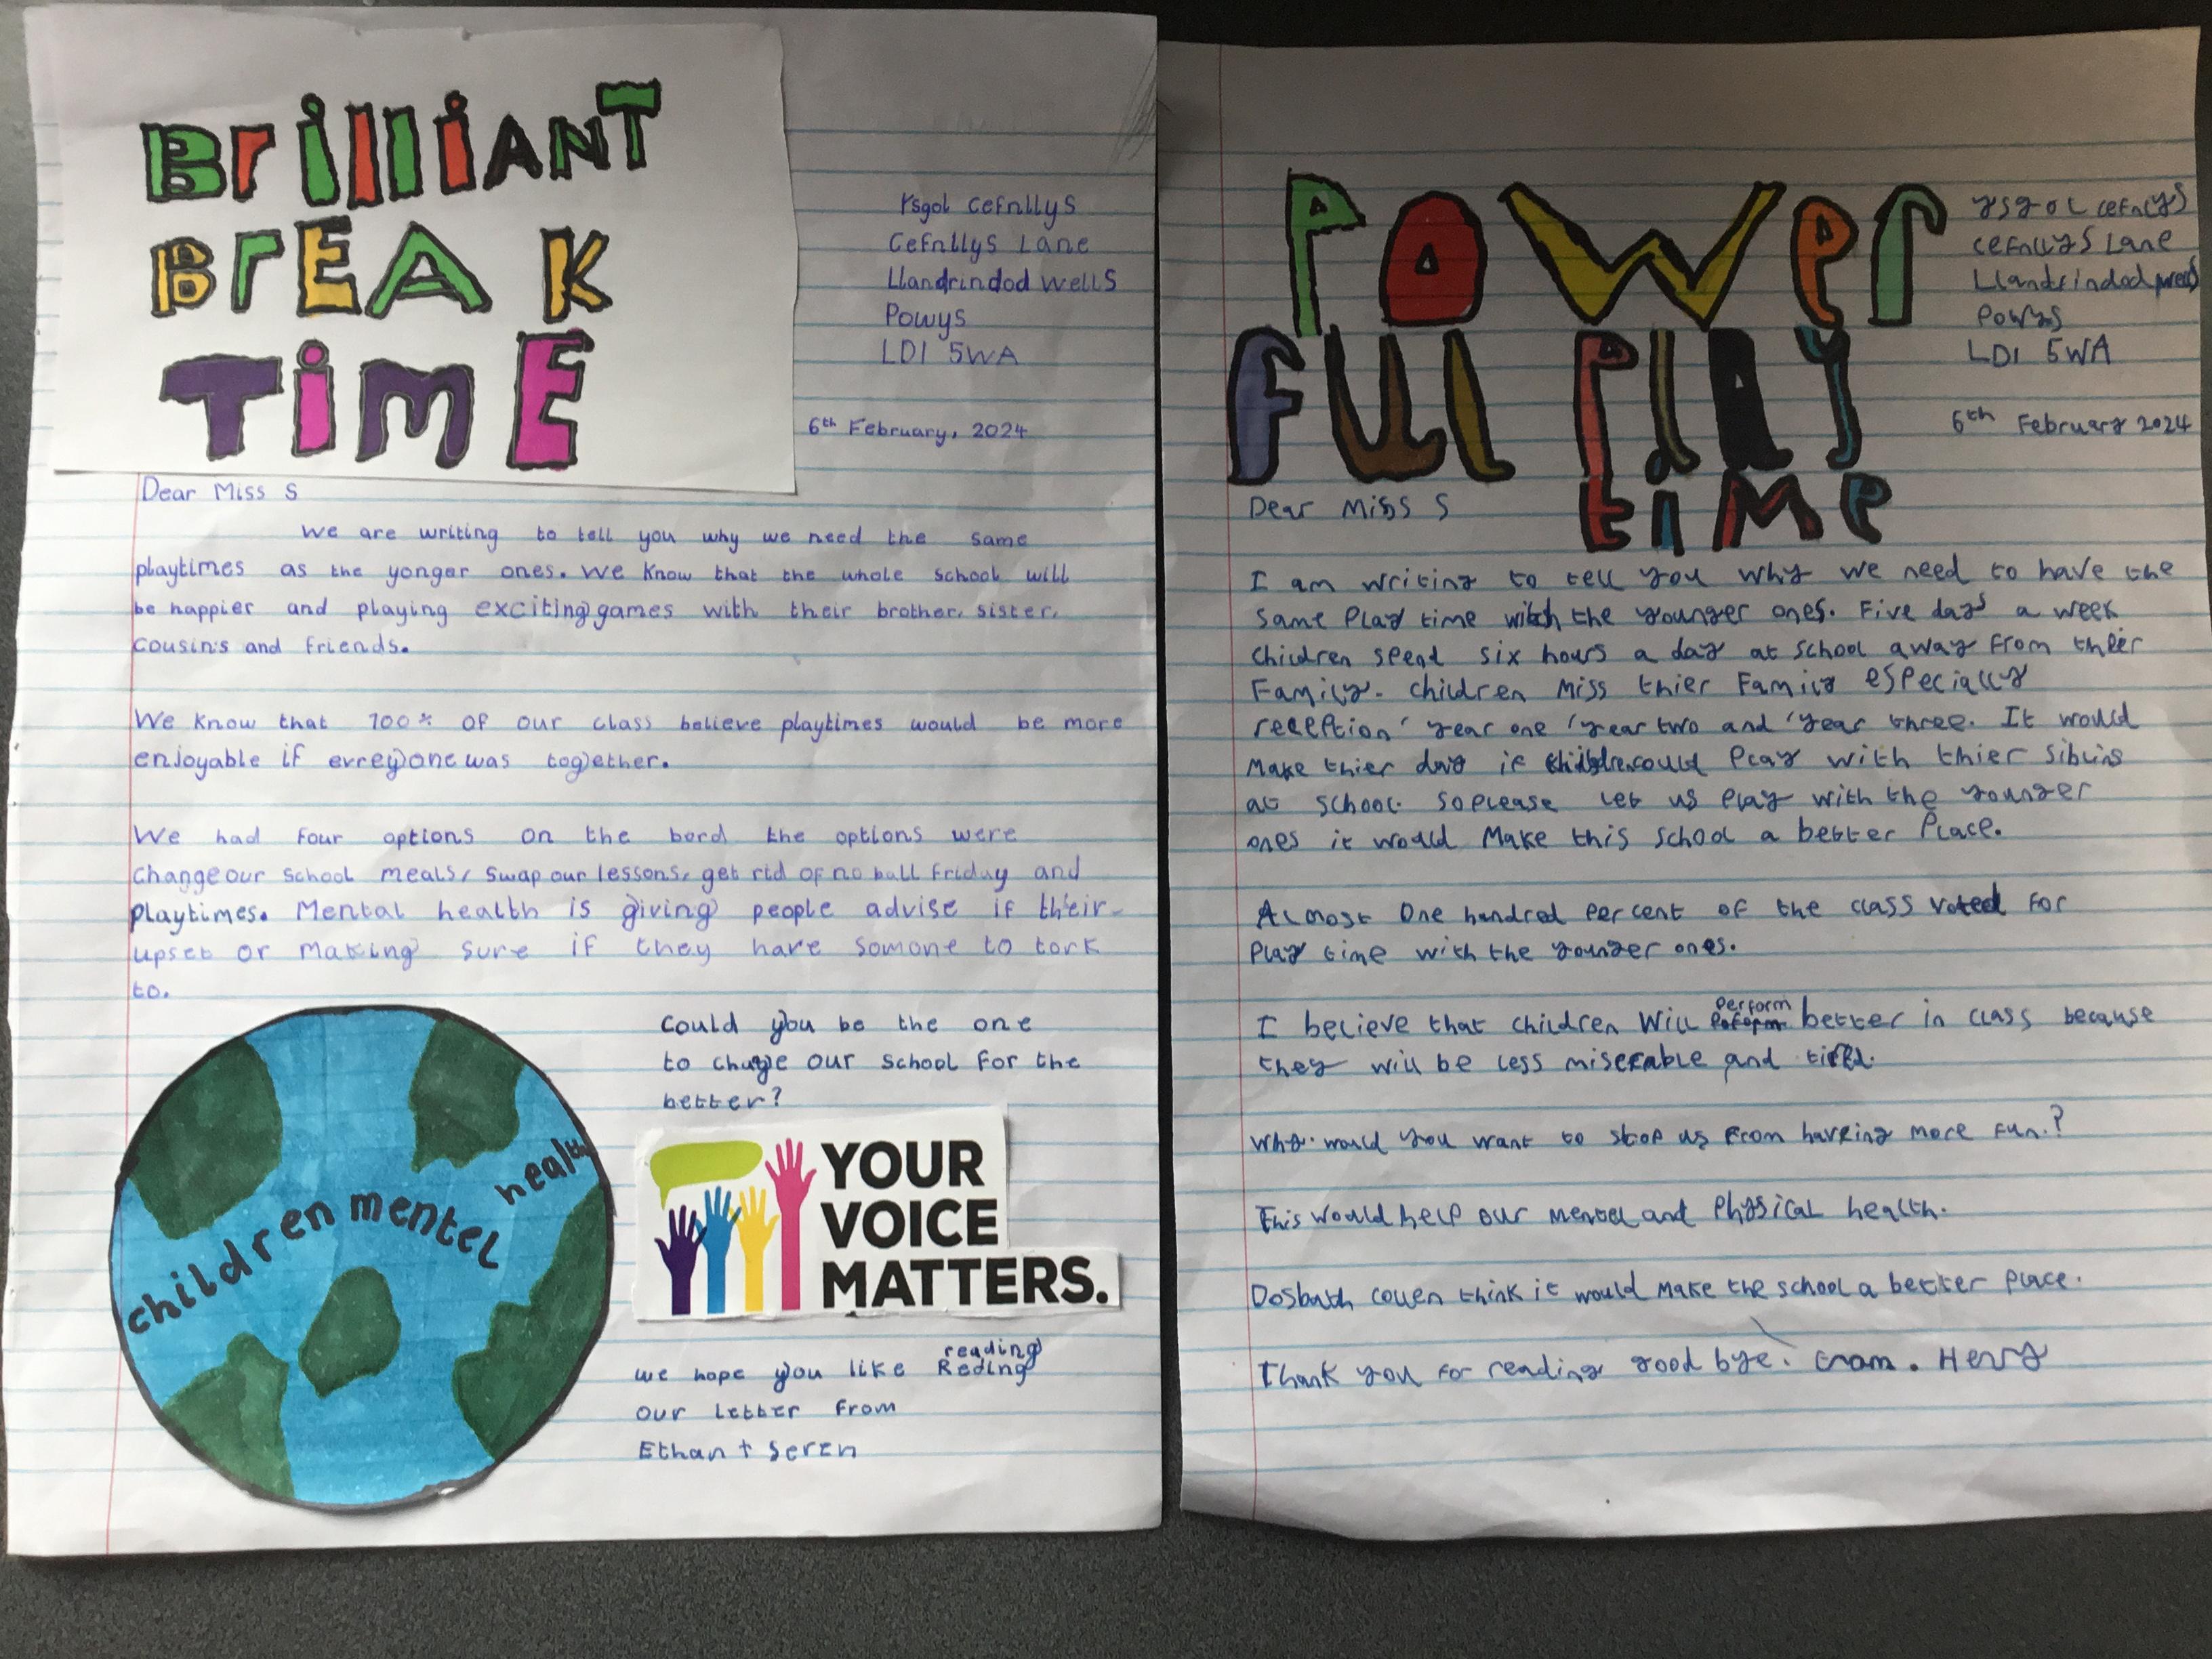 BrilliANT
BrEAK
TiME
Ysgol Cefnllys
Cefnllys Lane
Llandrindod Wells
Powys
LD1 5WA
6th February, 2024
Dear Miss S
We are writing to tell you why we need the same
playtimes as the yonger ones. We know that the whole school will
be happier and playing exciting games with their brother, sister,
cousin's and friends.
We know that 100% of our class believe playtimes would be more
enjoyable if evreyone was together.
We had four options on the bord the options were
change our school meals, swap our lessons, get rid of no ball friday and
playtimes. Mental health is giving people advise if their
upset or making sure if they have somone to tork
to.
children mentel health
Could you be the one
to chage our school for the
better?
YOUR
VOICE
MATTERS.
we hope you like reading
our letter from
Ethan + Seren
Power
Ful Play
time
Ysgol Cefnllys
Cefnllys Lane
Llandrindod Wells
Powys
LD1 5WA
6th February 2024
Dear Miss S
I am writing to tell you why we need to have the
same play time with the younger ones. Five days a week
children spend six hours a day at school away from thier
Family. Children miss thier family especially
reception' year one 'year two and 'year three. It would
make thier day if children could play with thier siblins
at school. So please let us play with the younger
ones it would make this school a better place.
Almost one hundred per cent of the class voted for
play time with the younger ones.
I believe that children will perform better in class because
they will be less miserable and tired.
Why would you want to stop us from having more fun.?
This would help our mentel and physical health.
Dosbath collen think it would make the school a better place.
Thank you for reading good bye. Henry